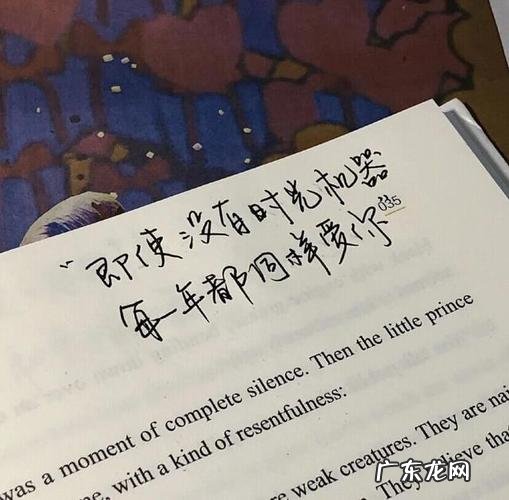 “即使没有时光机器
035
每一年都同样爱你
was a moment of complete silence. Then the little prince
me, with a kind of resentfulness:
re weak creatures. They are naï
. They believe that
广东龙网